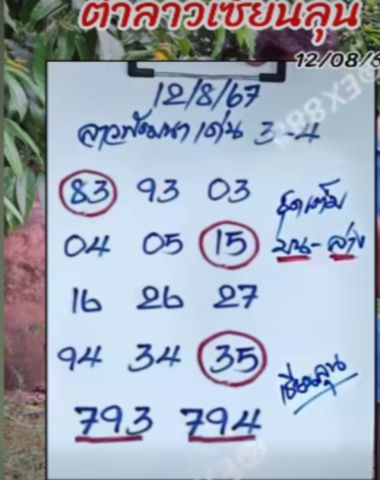 ตำลาวเซียนลุน
12/08/6
12/8/67
ลาวพัฒนา เด่น 3-4
83 93 03
ชุดเต็ม
04 05 15
บน-ล่าง
16 26 27
94 34 35
เซียนลุน
793 794
@EX889